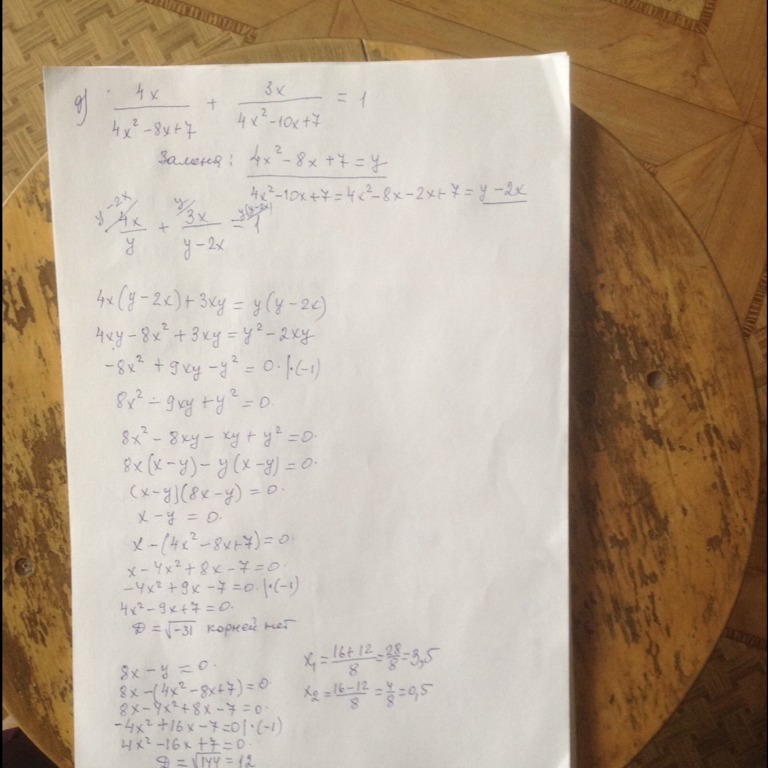 д) 4x/(4x²-8x+7) + 3x/(4x²-10x+7) = 1
Замена: 4x²-8x+7=y
4x²-10x+7=4x²-8x-2x+7=y-2x
y-2x 4x/y + y 3x/(y-2x) = y(y-2x) 1
4x(y-2x)+3xy=y(y-2x)
4xy-8x²+3xy=y²-2xy
-8x²+9xy-y²=0 |·(-1)
8x²-9xy+y²=0
8x²-8xy-xy+y²=0
8x(x-y)-y(x-y)=0
(x-y)(8x-y)=0
x-y=0
x-(4x²-8x+7)=0
x-4x²+8x-7=0
-4x²+9x-7=0 |·(-1)
4x²-9x+7=0
D=√-31 корней нет
8x-y=0
8x-(4x²-8x+7)=0
8x-4x²+8x-7=0
-4x²+16x-7=0 |·(-1)
4x²-16x+7=0
D=√144=12
x₁=(16+12)/8=28/8=3,5
x₂=(16-12)/8=4/8=0,5